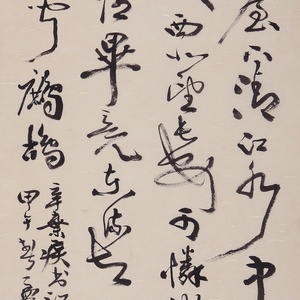 臺下清江水中
西北望長安可憐
住畢竟東流去
聞鷓鴣
辛棄疾書江
甲午